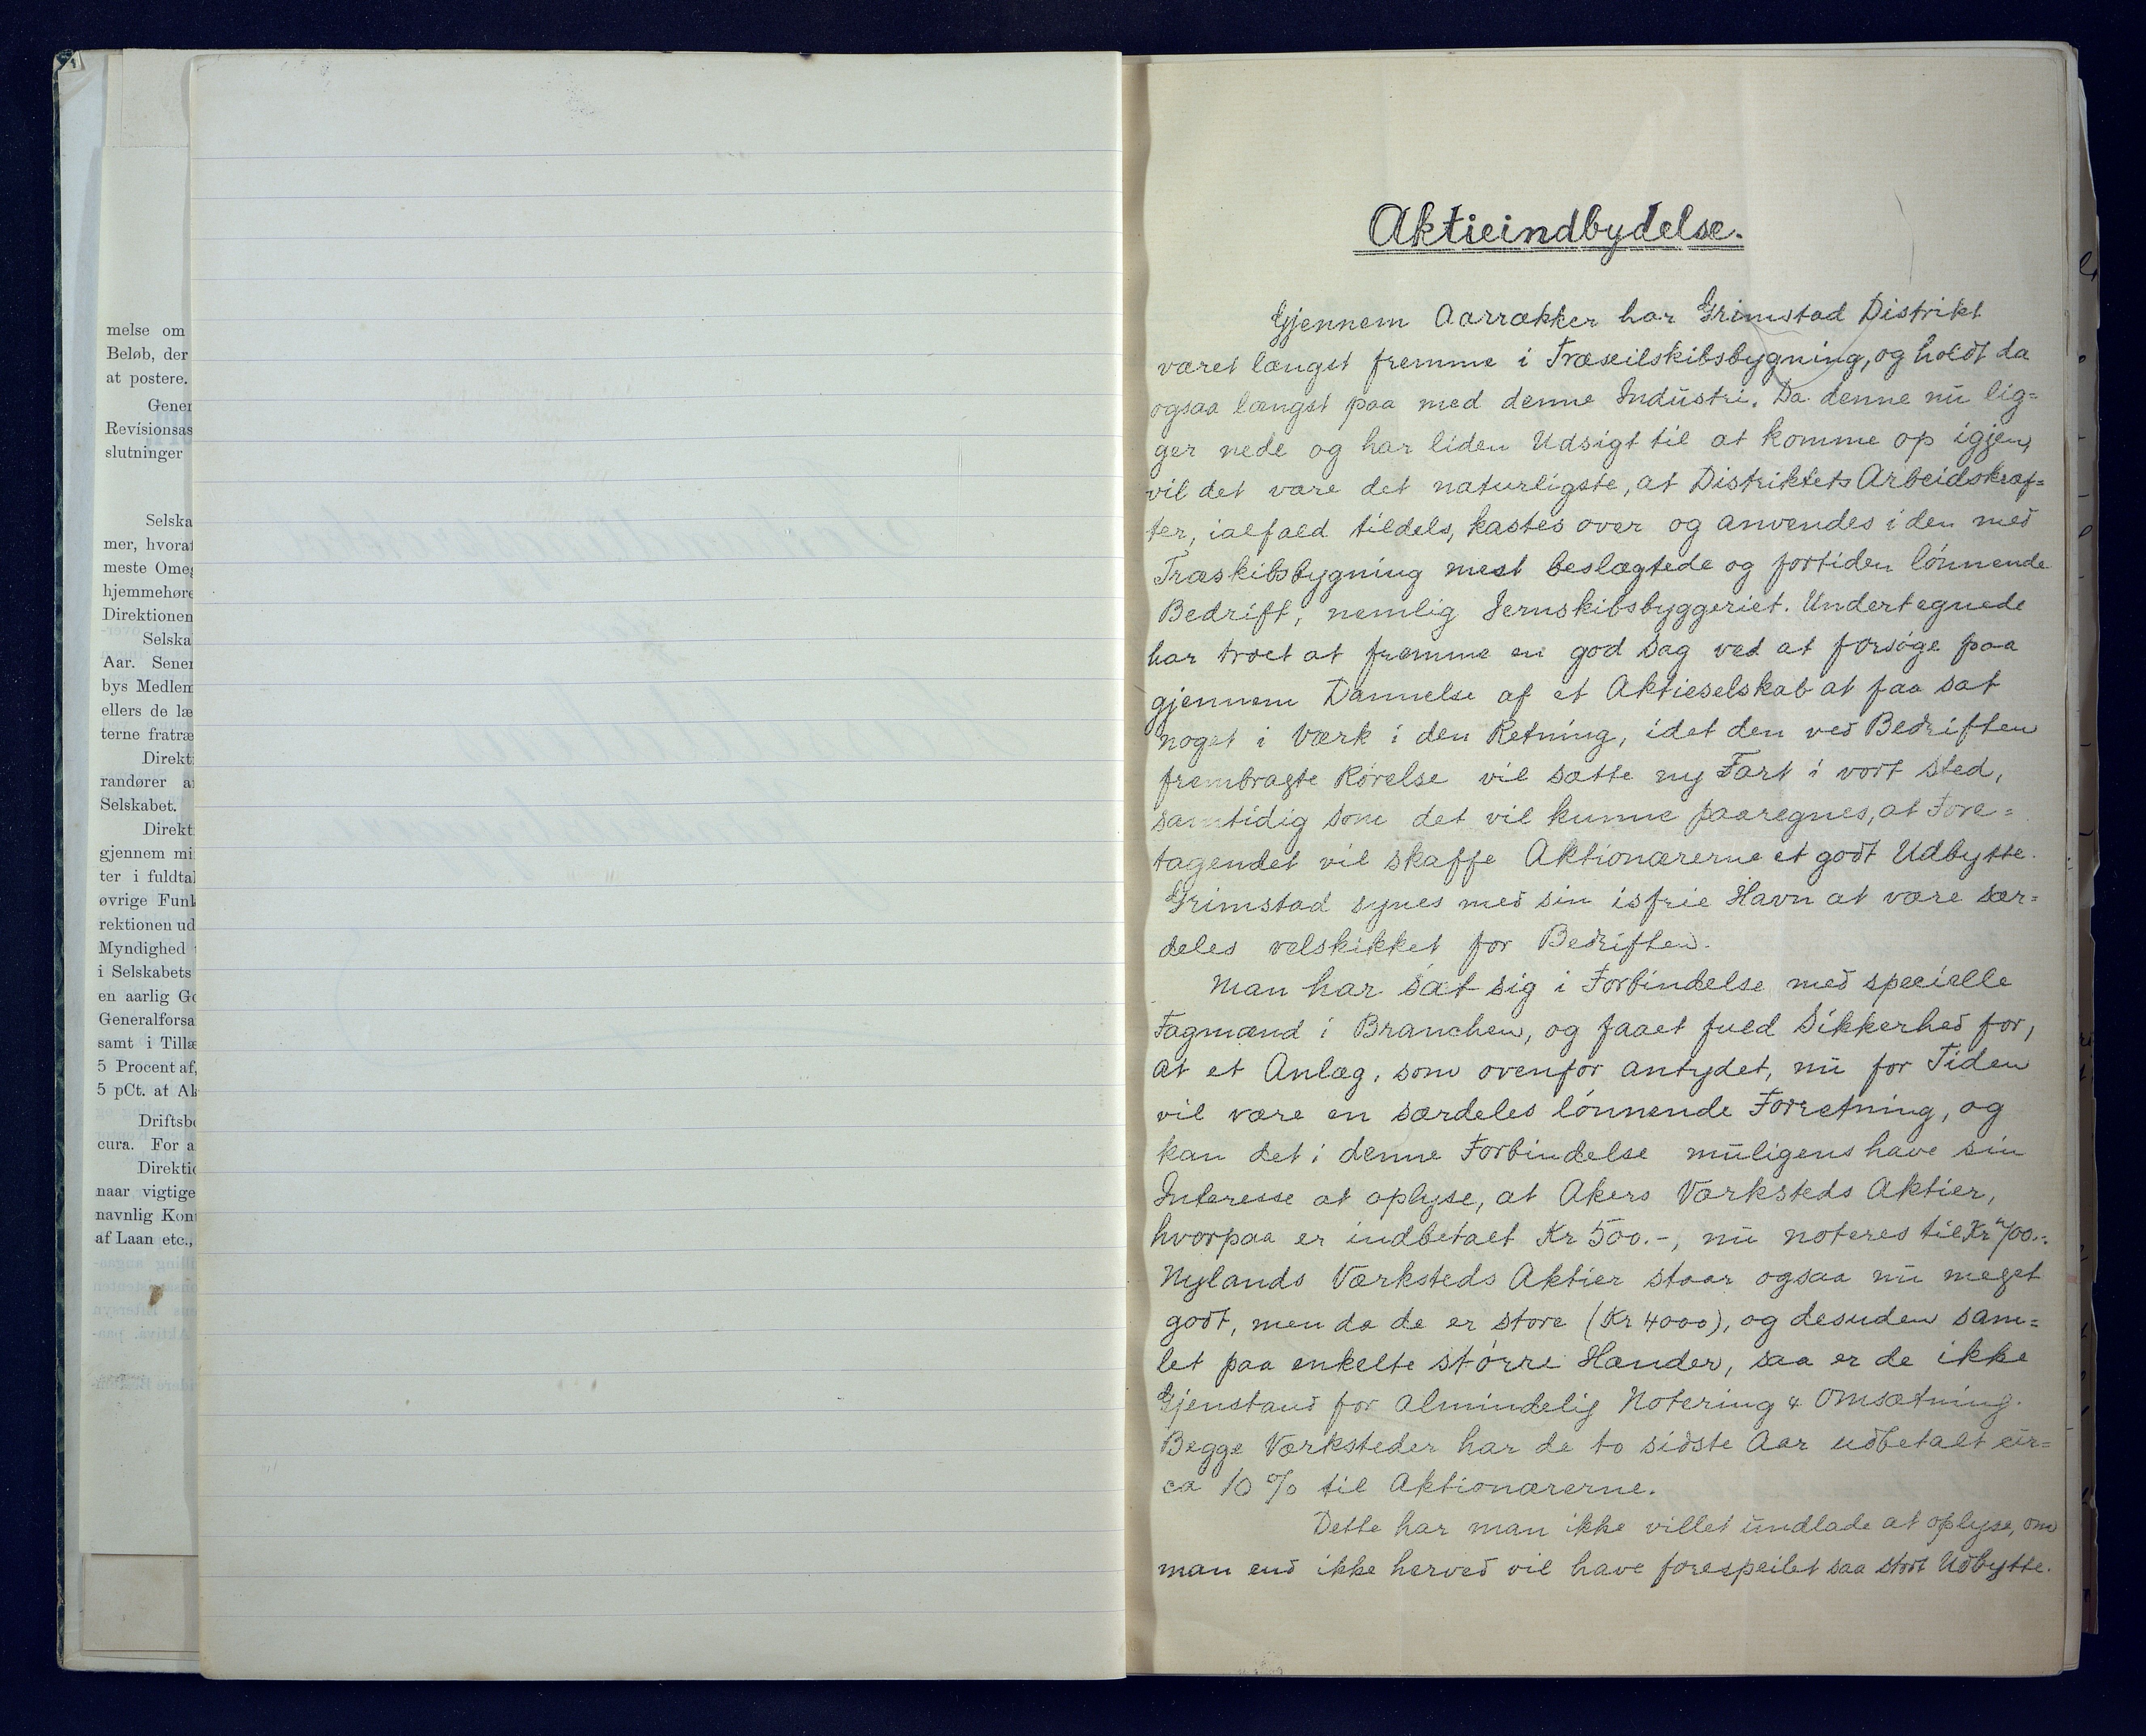 melse om
Beløb, der
at postere.
Gener
Revisionsas
slutninger
Selska
mer, hvoraf
meste Omeg
hjemmehøre
Direktionen
Selska
Aar. Sener
bys Medlem
ellers de læ
terne fratræ
Direkt
randører a
Selskabet.
Direkt
gjennem mi
ter i fuldtal
øvrige Funk
rektionen ud
Myndighed
i Selskabets
en aarlig Go
Generalforsa
samt i Tillæ
5 Procent af,
5 pCt. at Ak
Driftsbe
cura. For a
Direktio
naar vigtige
navnlig Kont
af Laan etc.,
Aktieindbydelse.
Gjennem Aarrækker har Grimstad Distrikt
været længst fremme i Træseilskibsbygning, og holdt da
ogsaa længst paa med denne Industri. Da denne nu lig=
ger nede og har liden Udsigt til at komme op igjen,
vil det være det naturligste, at Distriktets Arbeidskræf=
ter, ialfald tildels, kastes over og anvendes i den med
Træskibsbygning mest beslægtede og fortiden lönnende
Bedrift, nemlig Jernskibsbyggeriet. Undertegnede
har troet at fremme en god Sag ved at forsöge paa
gjennem Dannelse af et Aktieselskab at faa sat
noget i Værk i den Retning, idet den ved Bedriften
frembragte Rörelse vil sætte ny Fart i vort Sted,
samtidig som det vil kunne paaregnes, at Fore=
tagendet vil skaffe Aktionærerne et godt Udbytte.
Grimstad synes med sin isfrie Havn at være sær=
deles velskikket for Bedriften.
Man har sat sig i Forbindelse med specielle
Fagmænd i Branchen, og faaet fuld Sikkerhed for,
at et Anlæg, som ovenfor antydet, nu for Tiden
vil være en særdeles lönnende Forretning, og
kan det i denne Forbindelse muligens have sin
Interesse at oplyse, at Akers Værksteds Aktier,
hvorpaa er indbetalt Kr 500.-, nu noteres til Kr
Nylands Værksteds Aktier staar ogsaa nu meget
godt, men da de er store (Kr 4000), og desuden sam=
let paa enkelte större Hænder, saa er de ikke
Gjenstand for almindelig Notering & Omsætning.
Begge Værksteder har de to sidste Aar udbetalt cir=
ca 10 % til Aktionærerne.
Dette har man ikke villet undlade at oplyse, om
man end ikke herved vil have forespeilet saa stort Udbytte.